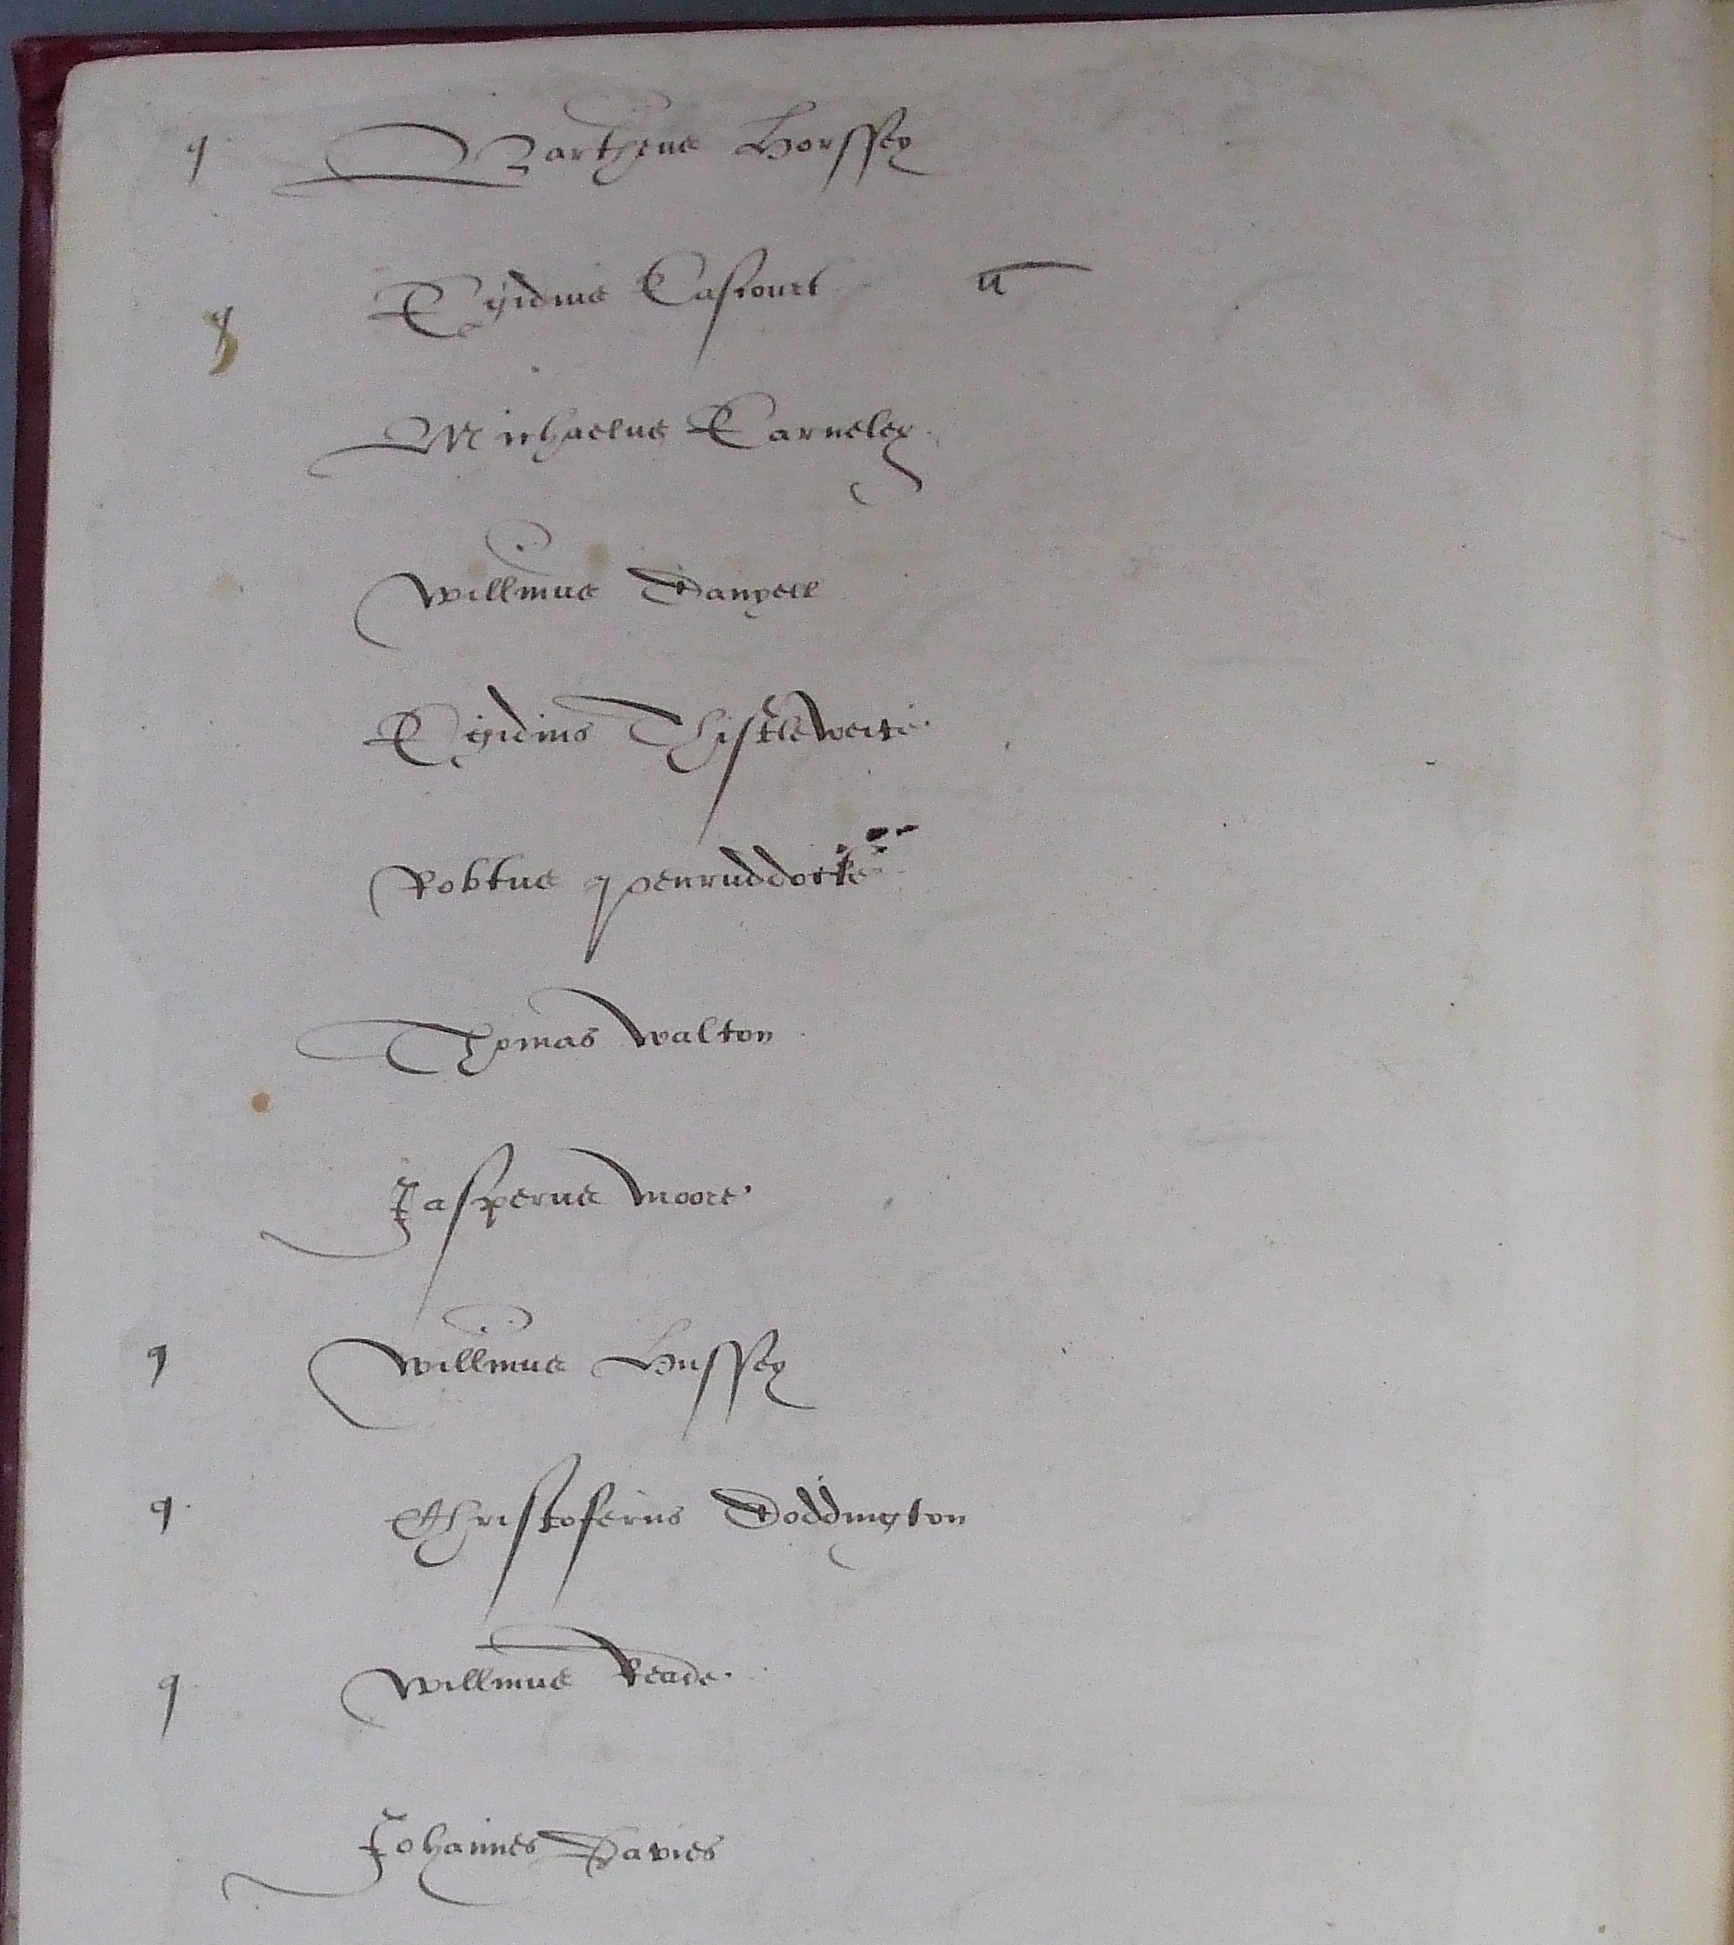 q Barthus Horssey
q Egidius Estcourt u
Michaelus Earneley
Willmus Danyell
Egidius Thistleweite
Robtus Penruddocke
Thomas Walton
Jasperus Moore
q Willmus Hussey
q Christoferus Doddington
q Willmus Reade
Johannes Davies